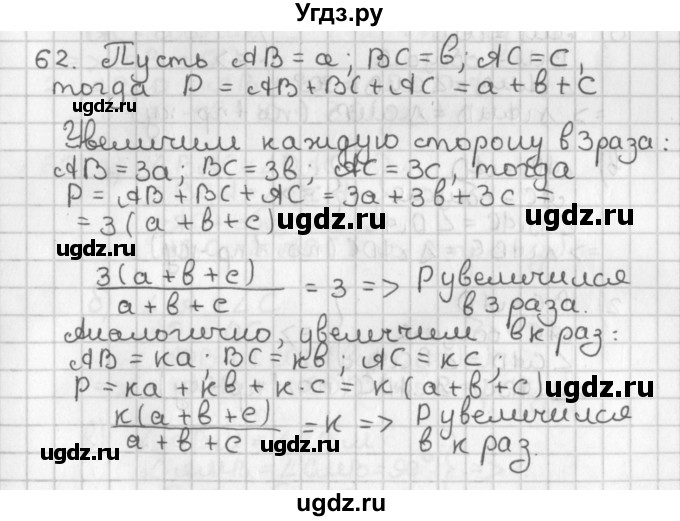 Угдз.ру
62. Пусть AB = a; BC = в; AC = c,
тогда P = AB + BC + AC = a + в + c
ugdz.ru
Увеличим каждую сторону в 3 раза:
ugdz.ru
AB = 3a; BC = 3в; AC = 3c, тогда
P = AB + BC + AC = 3a + 3в + 3c =
= 3(a + в + c) ugdz.ru
3(a + в + c)
a + в + c
= 3 => P увеличился
в 3 раза.
ugdz.ru
Аналогично, увеличим в к раз:
AB = кa; BC = кв; AC = кc;
P = кa + кв + к·c = к(a + в + c) ugdz.ru
к(a + в + c)
a + в + c
= к => P увеличился
в к раз.
ugdz.ru
ugdz.ru
ugdz.ru